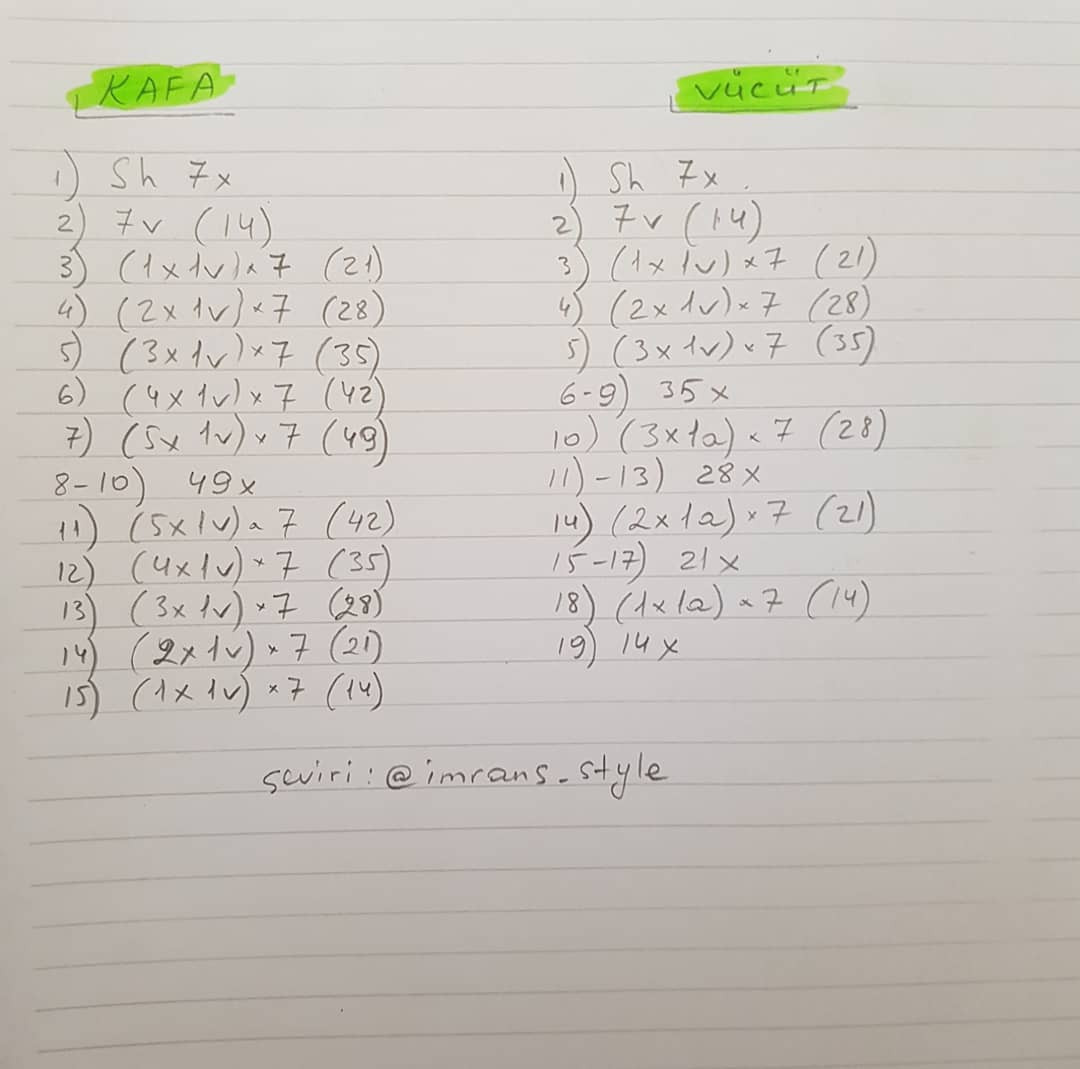 KAFA
1) Sh 7x
2) 7v (14)
3) (1x1v)x7 (21)
4) (2x1v)x7 (28)
5) (3x1v)x7 (35)
6) (4x1v)x7 (42)
7) (5x1v)x7 (49)
8-10) 49x
11) (5x1v)x7 (42)
12) (4x1v)x7 (35)
13) (3x1v)x7 (28)
14) (2x1v)x7 (21)
15) (1x1v)x7 (14)
VÜCÜT
1) Sh 7x.
2) 7v (14)
3) (1x1v)x7 (21)
4) (2x1v)x7 (28)
5) (3x1v)x7 (35)
6-9) 35x
10) (3x1a)x7 (28)
11)-13) 28x
14) (2x1a)x7 (21)
15-17) 21x
18) (1x1a)x7 (14)
19) 14x
çeviri: @imrans_style